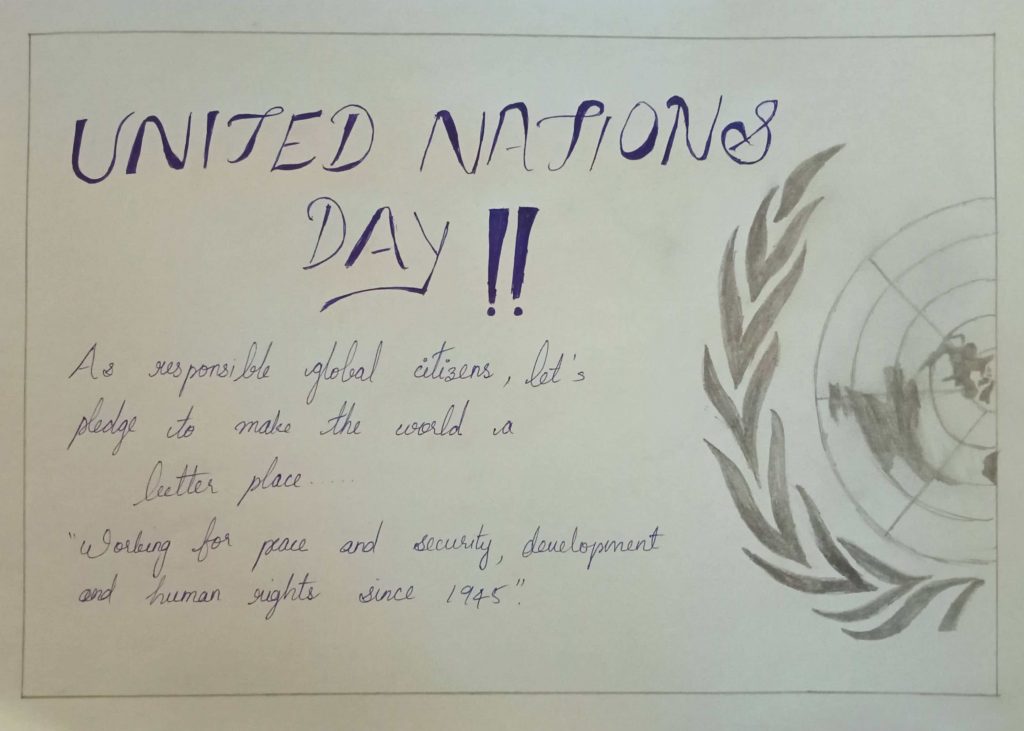 UNITED NATIONS
DAY !!
As responsible global citizens, let's
pledge to make the world a
better place.....
"Working for peace and security, development
and human rights since 1945".